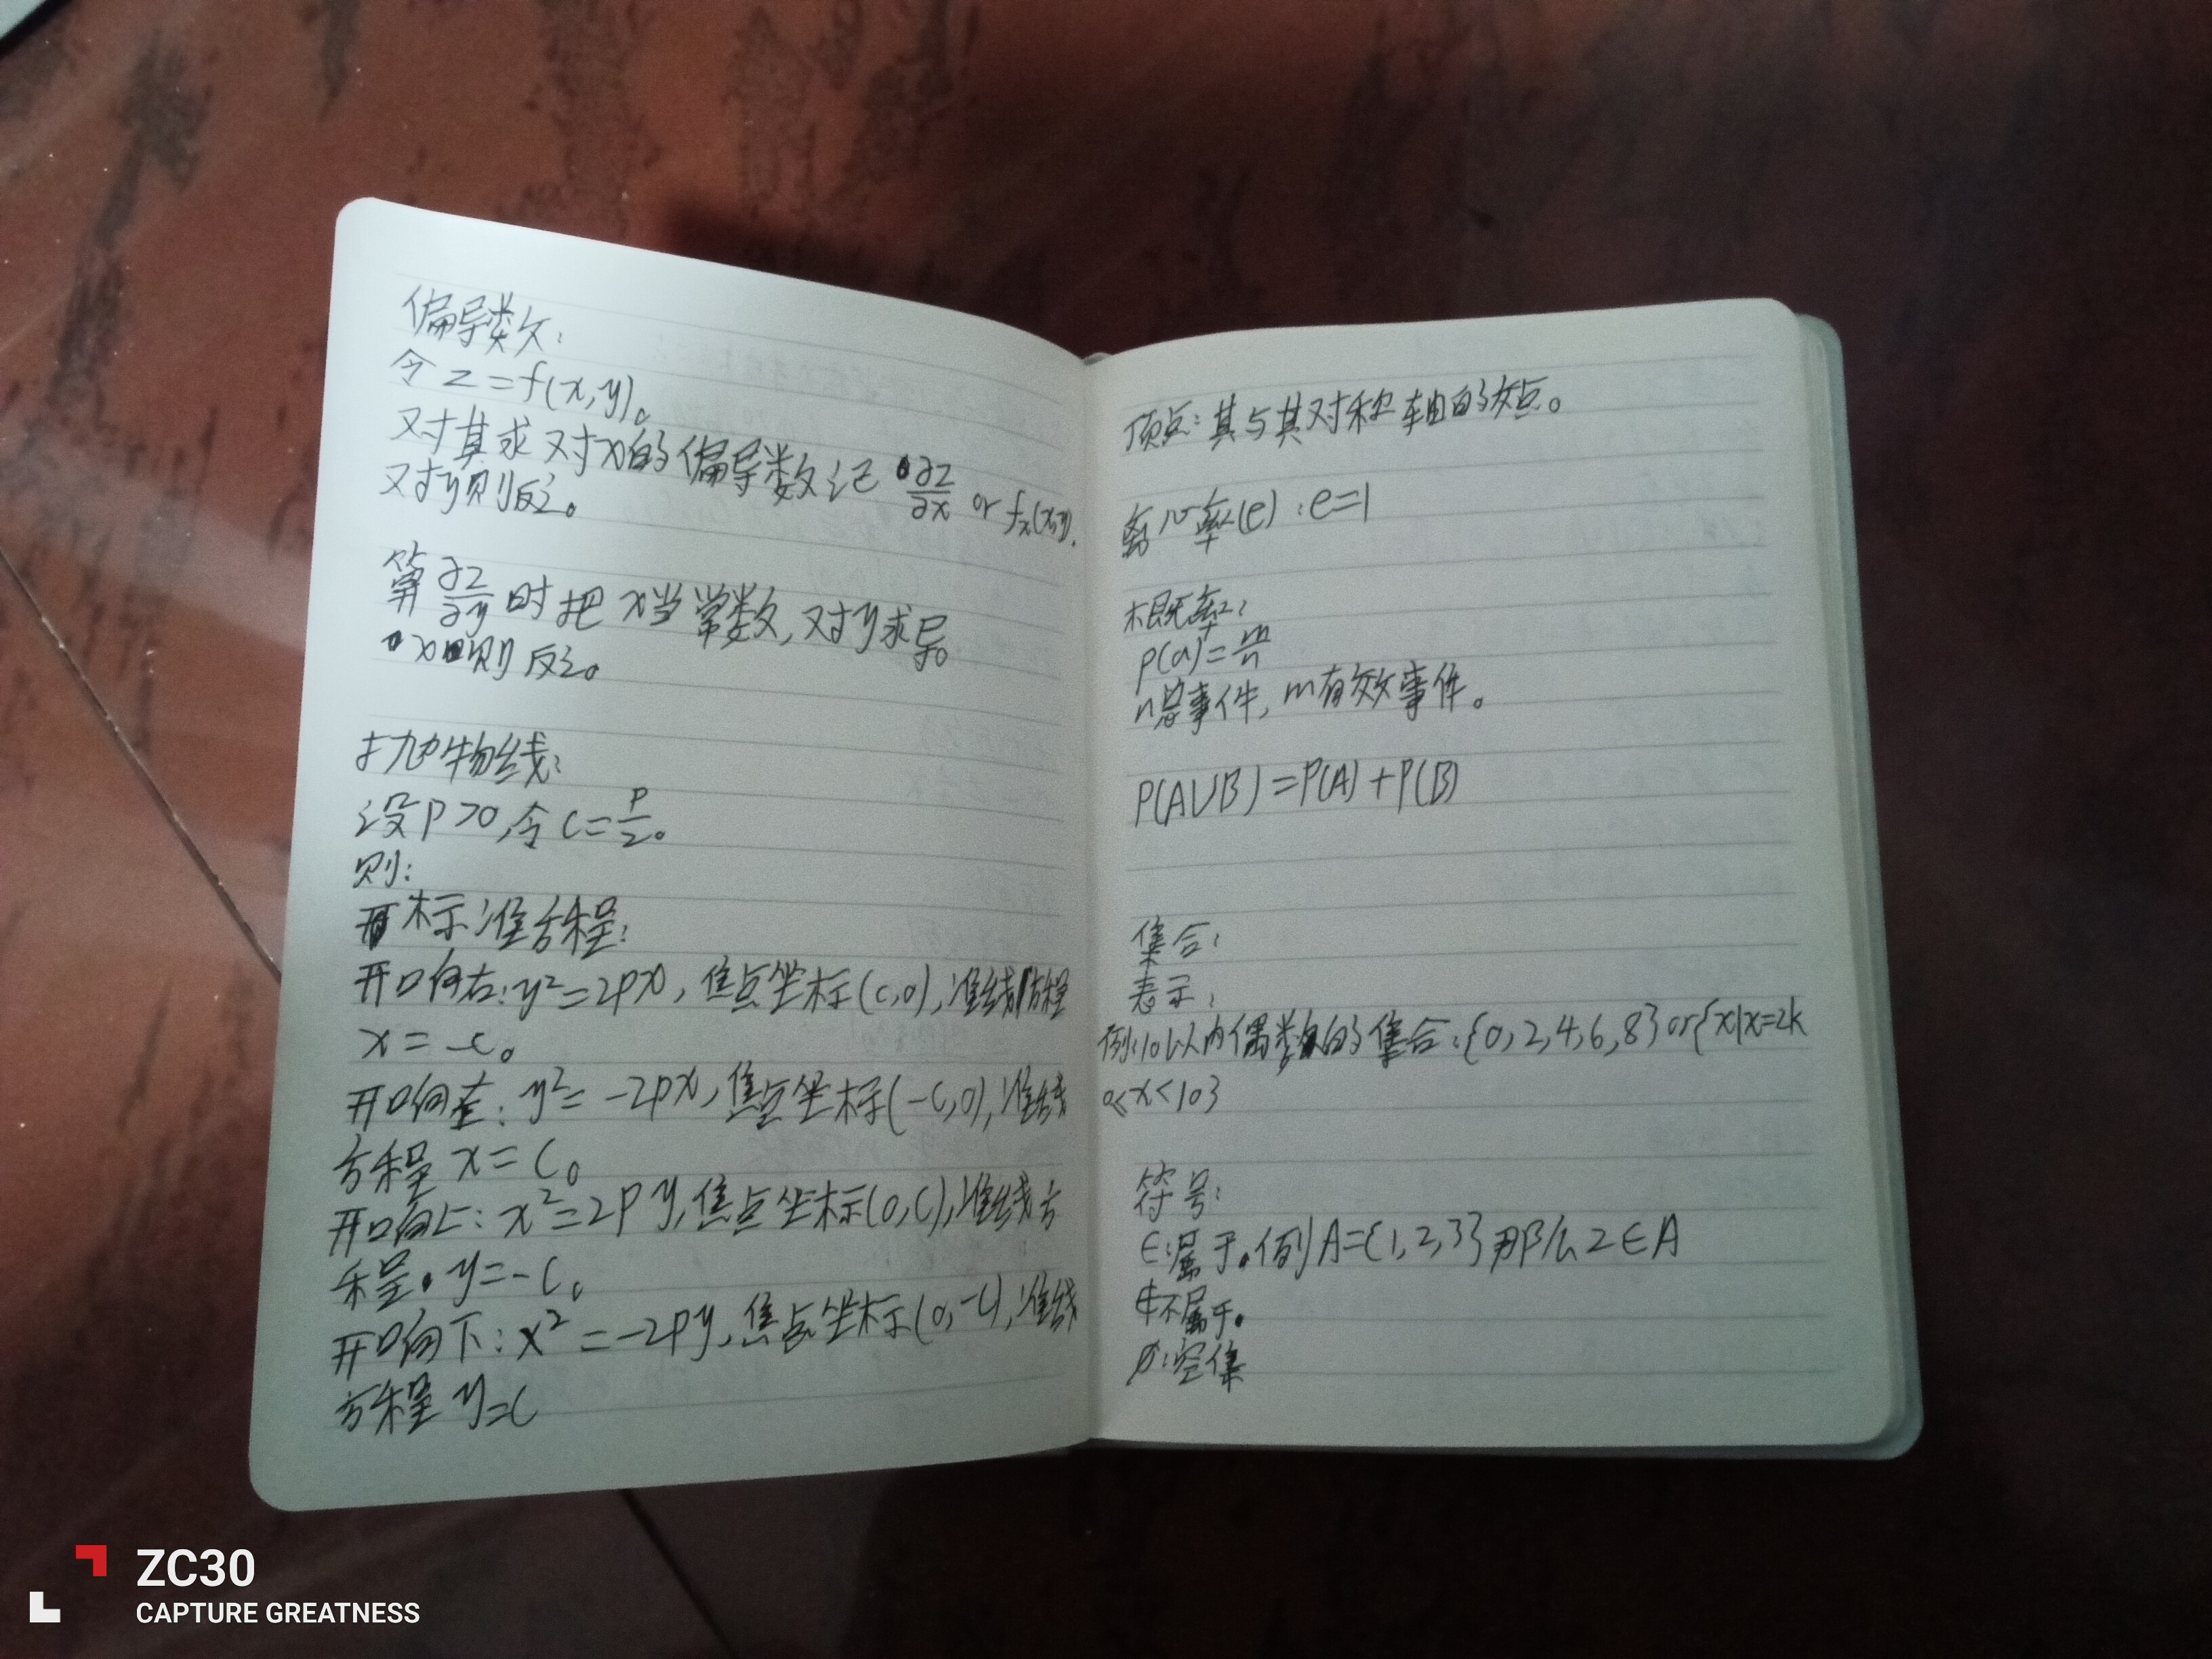 偏导数:
令 z=f(x,y)。
对其求对x的偏导数记 ∂z/∂x or fx(x,y).
对y则反之。
算 ∂z/∂y 时把 x当常数,对y求导。
x则反之。
抛物线:
设P>0,令 c=P/2。
则:
标准方程:
开口向右:y²=2px,焦点坐标(c,0),准线方程
x=-c。
开口向左:y²=-2px,焦点坐标(-c,0),准线
方程 x=c。
开口向上:x²=2py,焦点坐标(0,c),准线方
程 y=-c。
开口向下:x²=-2py,焦点坐标(0,-c),准线
方程 y=c
顶点:其与其对称轴的交点。
离心率(e):e=1
概率:
p(a)=m/n
n总事件,m有效事件。
P(A∪B)=P(A)+P(B)
集合:
表示:
例:10以内偶数的集合:{0,2,4,6,8}or{x|x=2k
0≤x<10}
符号:
∈:属于。例A={1,2,3}那么2∈A
∉不属于。
∅:空集
ZC30
CAPTURE GREATNESS